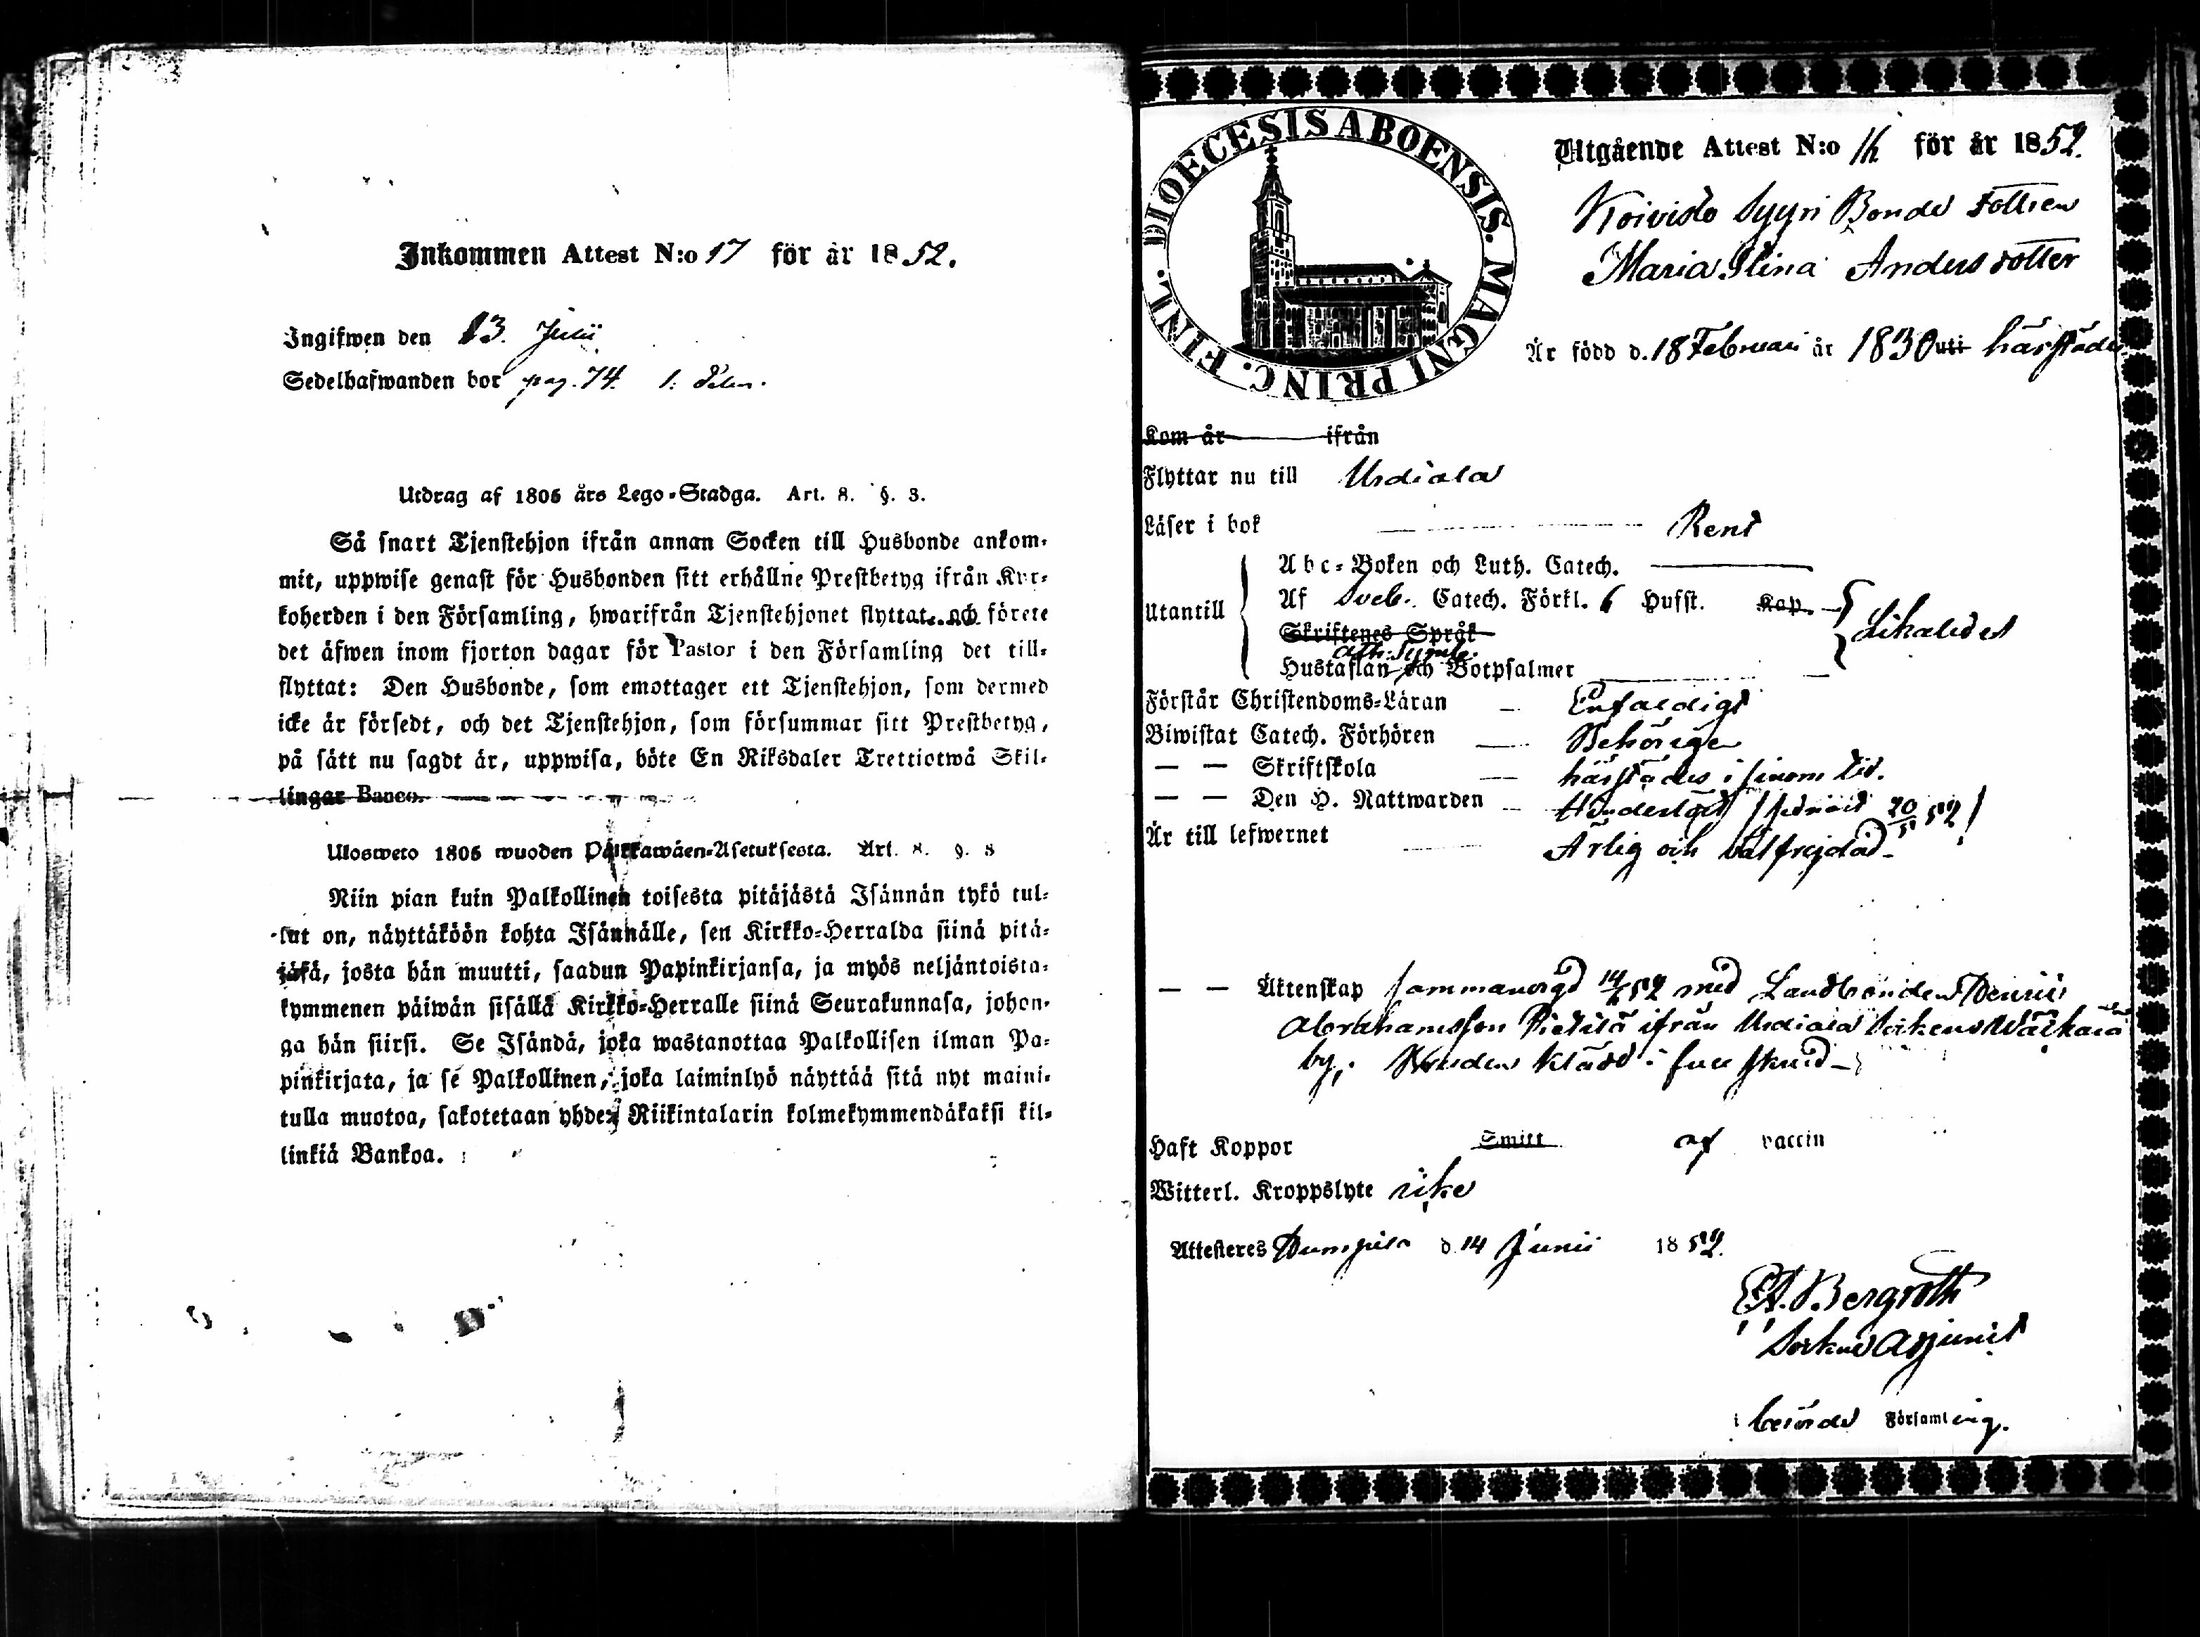 Inkommen Attest N:o 17 för år 1852.
Ingifwen den 13. Julii
Sedelhafwanden bor pag. 74. 1. Delen.
Utdrag af 1805 års Lego-Stadga. Art. 8. §. 3.
Så snart Tjenstehjon ifrån annan Socken till Husbonde ankom-
mit, uppwise genast för Husbonden sitt erhållne Prestbetyg ifrån Kyr-
koherden i den Församling, hwarifrån Tjenstehjonet flyttat, och förete
det äfwen inom fjorton dagar för Pastor i den Församling det till-
flyttat: Den Husbonde, som emottager ett Tjenstehjon, som dermed
icke är försedt, och det Tjenstehjon, som försummar sitt Prestbetyg,
på sätt nu sagdt är, uppwisa, böte En Riksdaler Trettiotwå Skil-
lingar Banco.
Ulosweto 1805 wuoden Palkkawäen-Asetuksesta. Art. 8. §. 3
Niin pian kuin Palkollinen toisesta pitäjästä Isännän tykö tul-
lut on, näyttäköön kohta Isännälle, sen Kirkko-Herralda siinä pitä-
jäsä, josta hän muutti, saadun Papinkirjansa, ja myös neljäntoista-
kymmenen päiwän sisällä Kirkko-Herralle siinä Seurakunnasa, johon-
ga hän siirsi. Se Isändä, joka wastanottaa Palkollisen ilman Pa-
pinkirjata, ja se Palkollinen, joka laiminlyö näyttää sitä nyt maini-
tulla muotoa, sakotetaan yhden Riikintalarin kolmekymmendäkaksi kil-
linkiä Bankoa.
DIOECESIS ABOENSIS. MAGNI PRINC. FINL.
Utgående Attest N:o för år 1852.
Koivisto Bonde dottren
Maria Stina Anders dotter
Är född d. 18 Februari år 1830 uti härstädes
Kom år ifrån
Flyttar nu till Urdiala
Läser i bok Rent
Utantill
Abc-Boken och Luth. Catech.
Af Sveb. Catech. Förkl. 6 Hufst. Kap. Likaledes
Skriftenes Språk
Ath: Symb:
Hustaflan och Botpsalmer
Förstår Christendoms-Läran Enfaldigt
Biwistat Catech. Förhören Behörigen
— — Skriftskola härstädes i sinom tid.
— — Den H. Nattwarden 20/5 52
Är till lefwernet Ärlig och välfrejdad
— — Äktenskap sammanvigd 14/6 52 med Landbonden Henric
Abrahamsson ifrån Urdiala Sockens
by, Bruden klädd i full skrud
Haft Koppor Smitt af vaccin
Witterl. Kroppslyte icke
Attesteres d. 14 Junii 1852.
Bergroth
Sockne Adjunct
i berörde Församling.